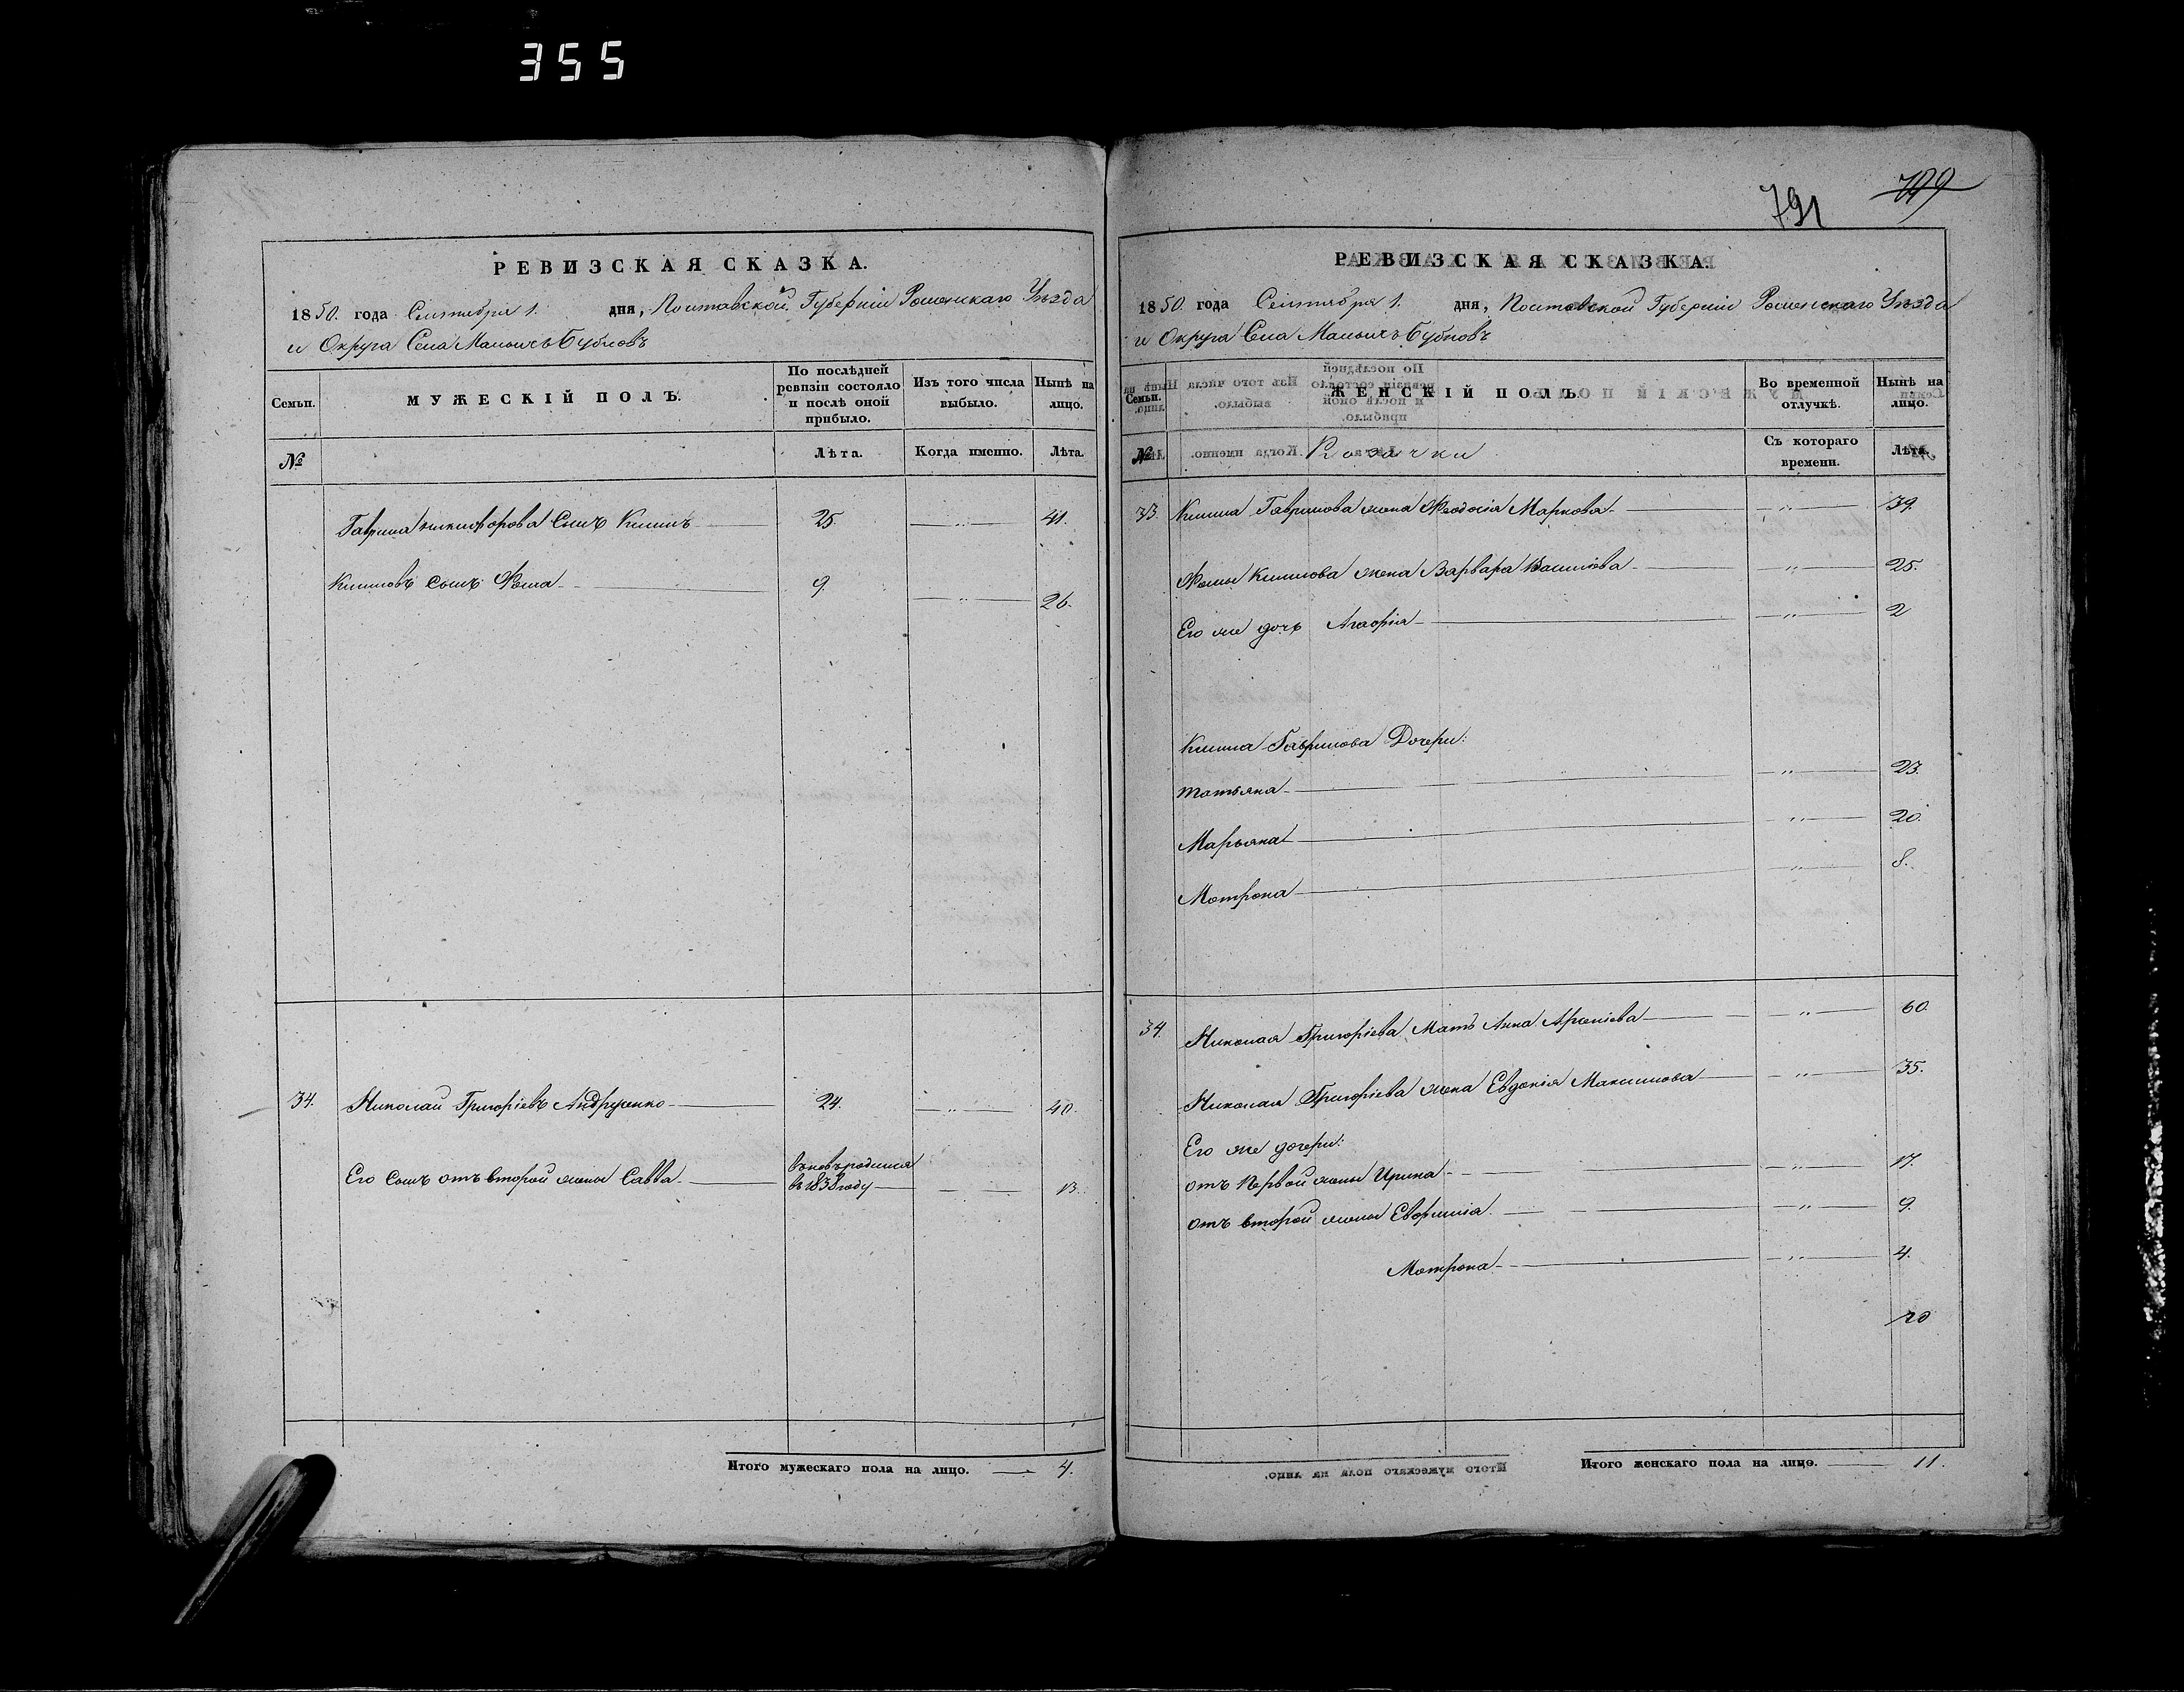 355
791
799
РЕВИЗСКАЯ СКАЗКА.
1850. года Сентября 1. дня, Полтавской Губерніи Роменскаго Уѣзда
и Округа Села Малыхъ Бубновъ
Семьи.
МУЖЕСКІЙ ПОЛЪ.
По послѣдней ревизіи состояло и послѣ оной прибыло.
Изъ того числа выбыло.
Нынѣ на лицо.
№
Лѣта.
Когда именно.
Лѣта.
Гаврила Никифорова Сынъ Климъ 25. 41.
Климовъ Сынъ Фома 9. 26.
34. Николай Григоріевъ Андрущенко 24. 40.
Его Сынъ отъ второй жены Савва
въ 1838 году 13.
Итого мужескаго пола на лицо. 4.
РЕВИЗСКАЯ СКАЗКА.
1850. года Сентября 1. дня, Полтавской Губерніи Роменскаго Уѣзда
и Округа Села Малыхъ Бубновъ
Семьи.
ЖЕНСКІЙ ПОЛЪ.
Во временной отлучкѣ.
Нынѣ на лицо.
№
Козачки
Съ котораго времени.
Лѣта.
33. Клима Гаврилова жена Феодосія Маркова 39.
Фомы Климова жена Варвара Василіева 25.
Его же дочь Агафія 2
Клима Гаврилова Дочери:
Татьяна 23.
Марьяна 20.
Мотрона 8.
34. Николая Григоріева Мать Анна Арсеніева 60.
Николая Григоріева жена Евдокія Максимова 35.
Его же дочери:
отъ Первой жены Ирина 17.
отъ второй жены Евфимія 9.
Мотрона 4.
Итого женскаго пола на лицо. 11.